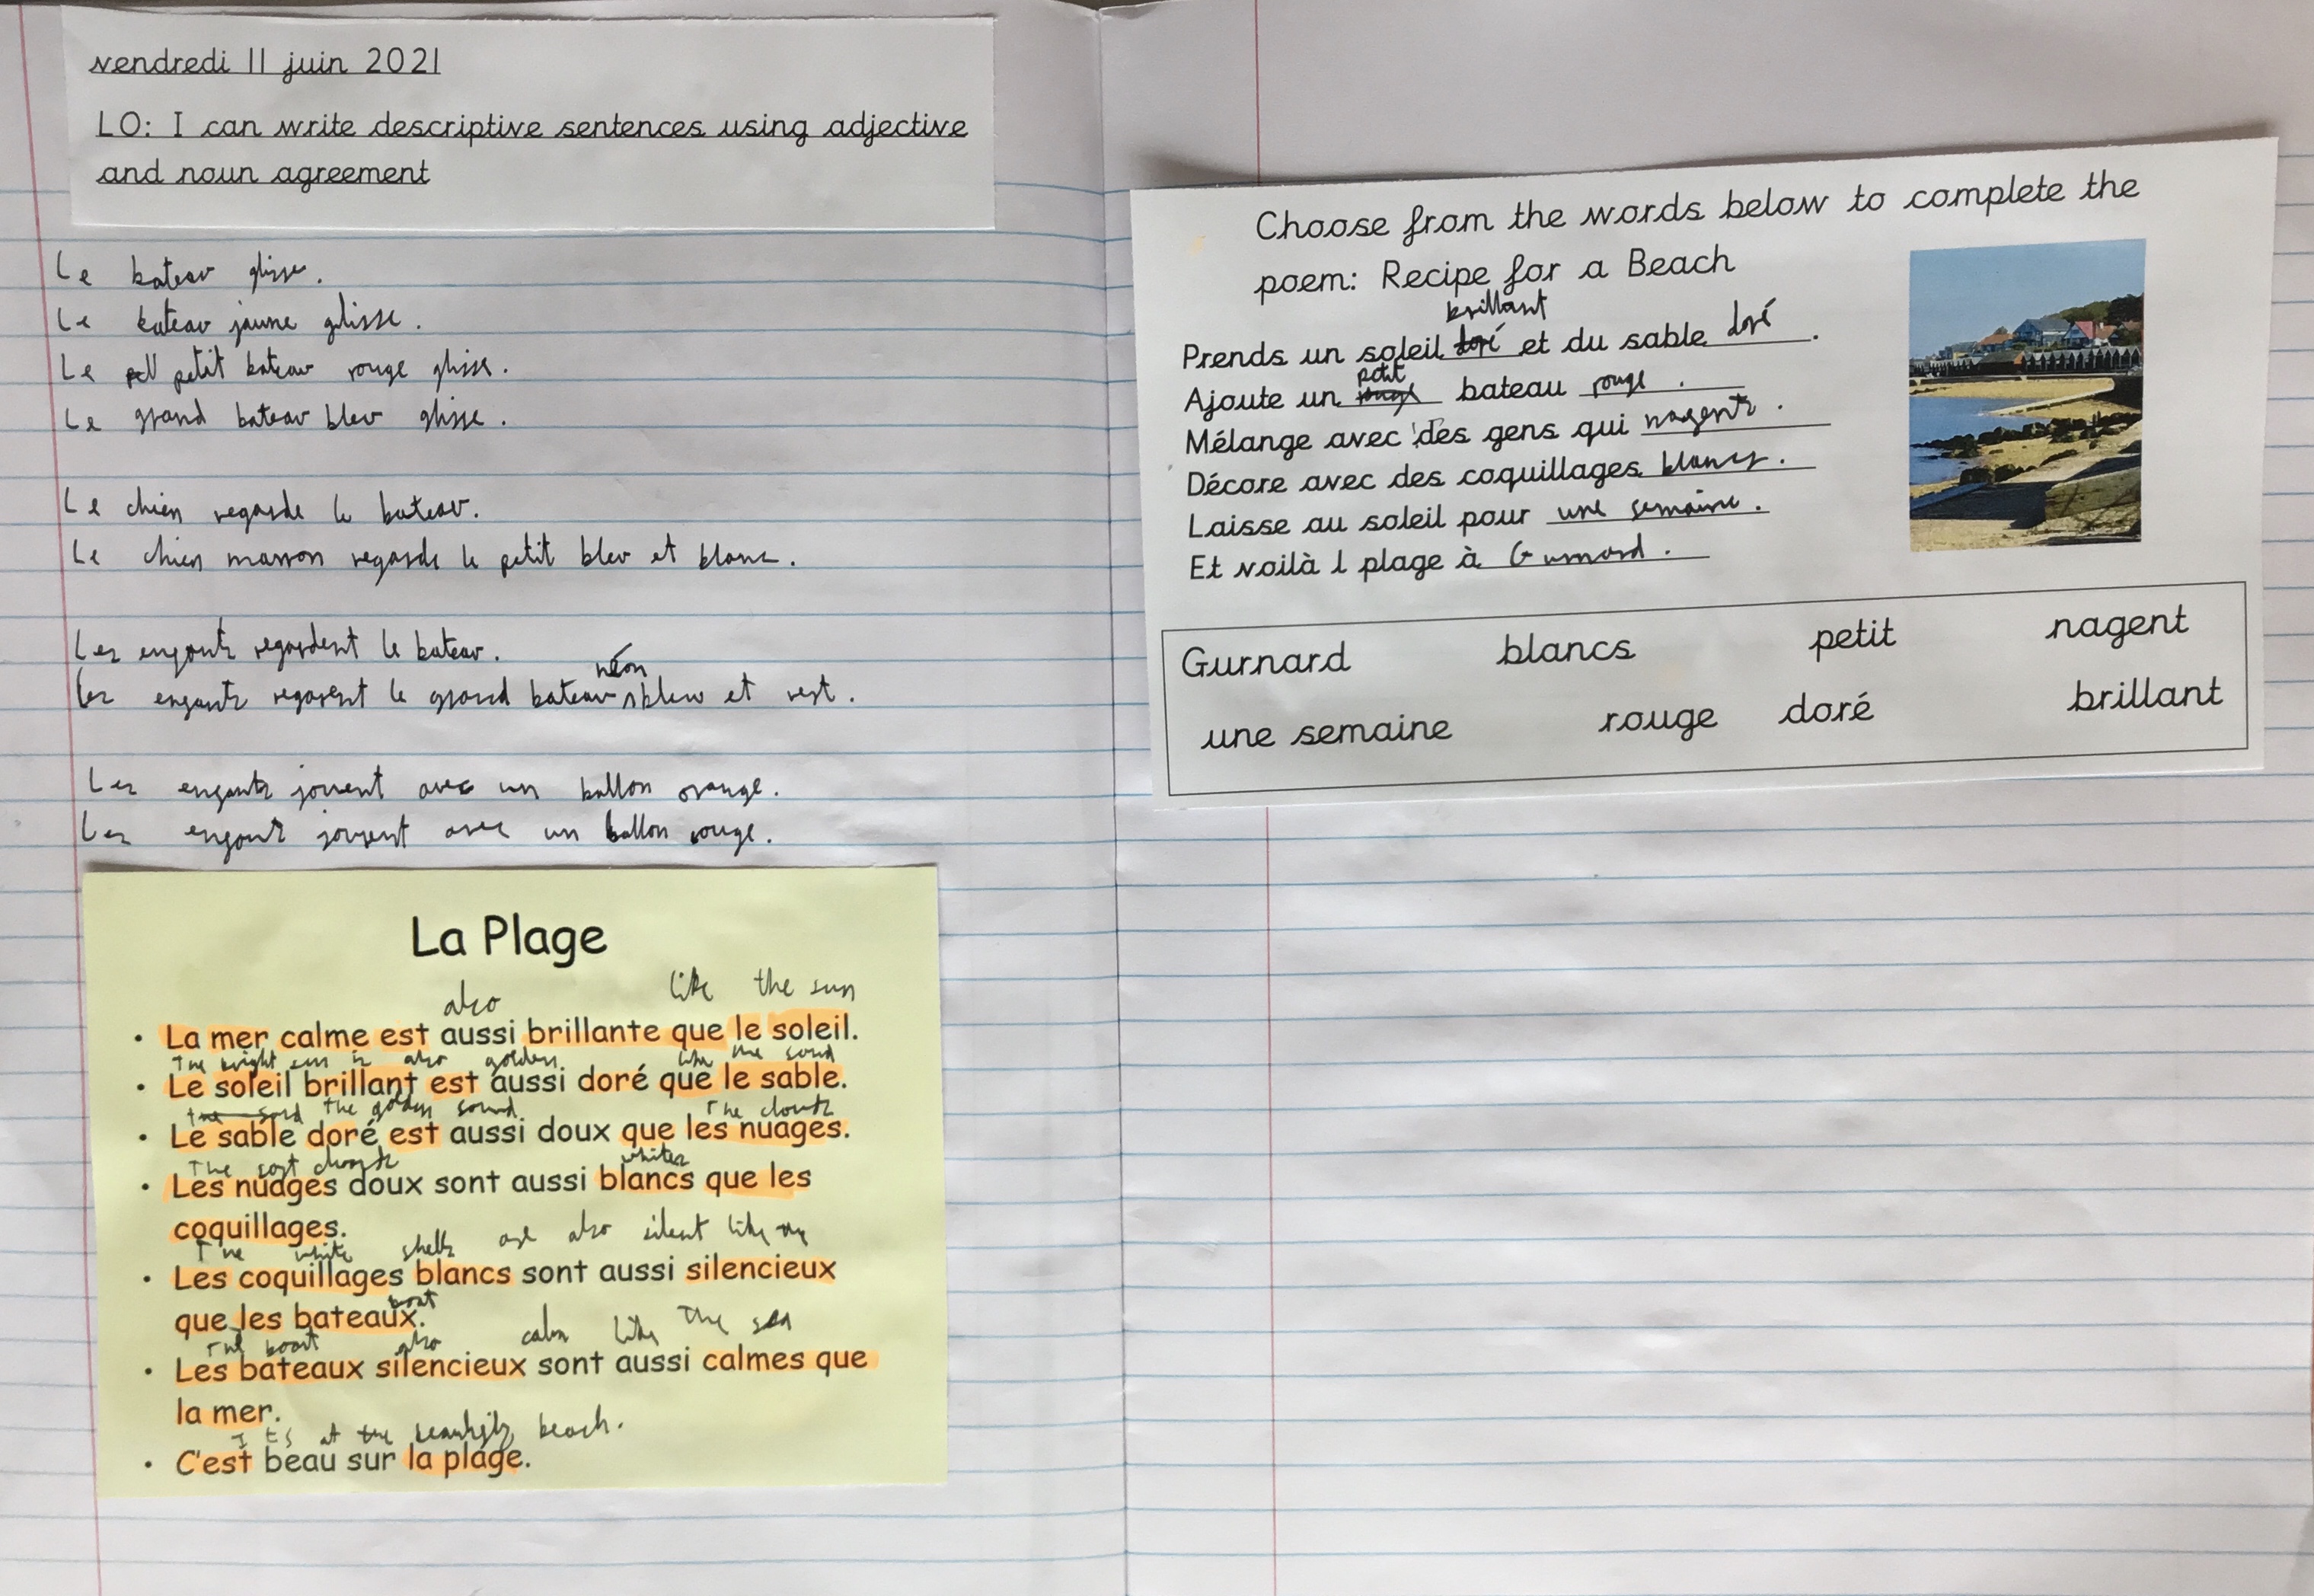 vendredi 11 juin 2021
LO: I can write descriptive sentences using adjective
and noun agreement
Le bateau glisse.
Le bateau jaune glisse.
Le petit bateau rouge glisse.
Le grand bateau bleu glisse.
Le chien regarde le bateau.
Le chien marron regarde le petit bleu et blanc.
Les enfants regardent le bateau.
néon
Les enfants regarent le grand bateau bleu et vert.
Les enfants jouent avec un ballon orange.
Les enfants jouent avec un ballon rouge.
La Plage
also like the sun
• La mer calme est aussi brillante que le soleil.
The bright sun is also golden like the sand
• Le soleil brillant est aussi doré que le sable.
the sand the golden sand the clouds
• Le sable doré est aussi doux que les nuages.
The soft clouds whites
• Les nuages doux sont aussi blancs que les
coquillages.
The white shells are also silent like
• Les coquillages blancs sont aussi silencieux
boat
que les bateaux.
The boat also calm like the sea
• Les bateaux silencieux sont aussi calmes que
la mer.
It's at the beach.
• C'est beau sur la plage.
Choose from the words below to complete the
poem: Recipe for a Beach
brillant
Prends un soleil doré et du sable doré.
petit
Ajoute un rouge bateau rouge.
Mélange avec des gens qui nagent.
Décore avec des coquillages blancs.
Laisse au soleil pour une semaine.
Et voilà l plage à Gurnard.
Gurnard blancs petit nagent
une semaine rouge doré brillant